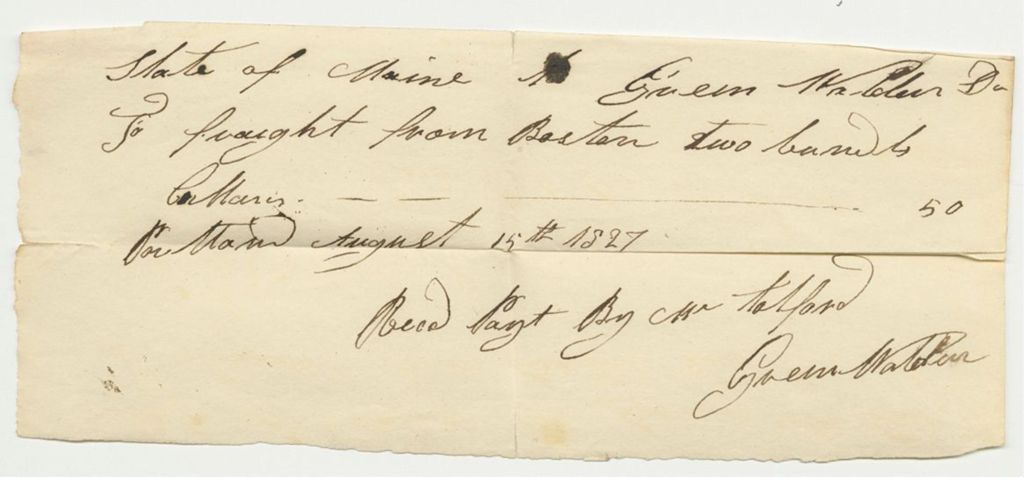 State of Maine To Green Walden Dr
To fraught from Boston two bundls
50
Portland August 15th 1827
Recd Payt By Mr Talford
Green Walden